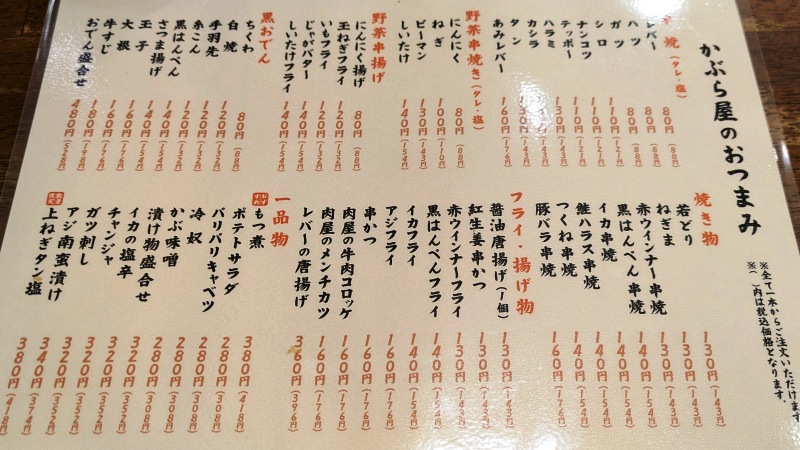 かぶら屋のおつまみ
※全て一本からご注文いただけます。
※（ ）内は税込価格となります。
焼（タレ・塩）
レバー 80円（88円）
ハツ 80円（88円）
ガツ 80円（88円）
シロ 110円（121円）
ナンコツ 110円（121円）
テッポー 110円（121円）
ハラミ 130円（143円）
カシラ 130円（143円）
タン 130円（143円）
あみレバー 160円（176円）
野菜串焼き（タレ・塩）
にんにく 80円（88円）
ねぎ 100円（110円）
ピーマン 130円（143円）
しいたけ 140円（154円）
野菜串揚げ
にんにく揚げ 80円（88円）
玉ねぎフライ 120円（132円）
いもフライ 120円（132円）
じゃがバター 140円（154円）
しいたけフライ 140円（154円）
黒おでん
ちくわ 80円（88円）
白焼 120円（132円）
手羽先 120円（132円）
糸こん 120円（132円）
黒はんぺん 140円（154円）
さつま揚げ 140円（154円）
玉子 160円（176円）
大根 160円（176円）
牛すじ 180円（198円）
おでん盛合せ 480円（528円）
焼き物
若どり 130円（143円）
ねぎま 130円（143円）
赤ウインナー串焼 130円（143円）
黒はんぺん串焼 140円（154円）
イカ串焼 140円（154円）
鮭ハラス串焼 140円（154円）
つくね串焼 140円（154円）
豚バラ串焼 160円（176円）
フライ・揚げ物
醤油唐揚げ（1個） 130円（143円）
紅生姜串かつ 130円（143円）
赤ウインナーフライ 130円（143円）
黒はんぺんフライ 140円（154円）
イカフライ 160円（176円）
アジフライ 160円（176円）
串かつ 160円（176円）
肉屋の牛肉コロッケ 160円（176円）
肉屋のメンチカツ 160円（176円）
レバーの唐揚げ 360円（396円）
一品物
おすすめ もつ煮 380円（418円）
ポテトサラダ 280円（308円）
バリバリキャベツ 280円（308円）
冷奴 280円（308円）
かぶ味噌 280円（308円）
漬け物盛合せ 320円（352円）
イカの塩辛 320円（352円）
チャンジャ 320円（352円）
ガツ刺し 320円（352円）
アジ南蛮漬け 340円（374円）
数量限定 上ねぎタン塩 380円（418円）